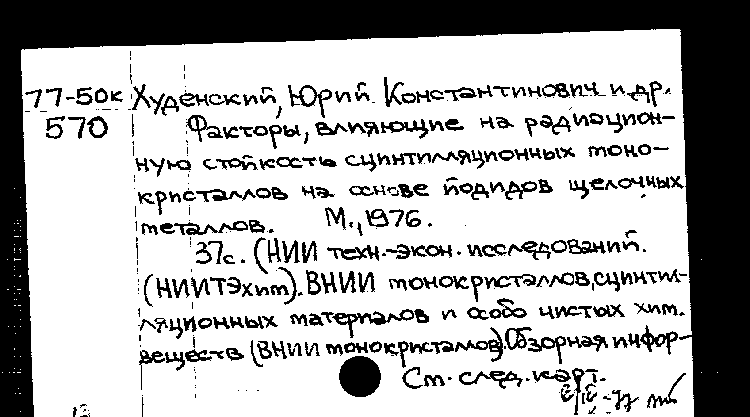 77-50к Худенский, Юрий Константинович и др.
570 Факторы, влияющие на радиацион-
ную стойкость сцинтилляционных моно-
кристаллов на основе йодидов щелочных
металлов. М., 1976.
37с. (НИИ техн.-экон. исследований.
(НИИТЭхим). ВНИИ монокристаллов, сцинтил-
ляционных материалов и особо чистых хим.
веществ (ВНИИ монокристаллов). Обзорная инфор-
См. след. карт.